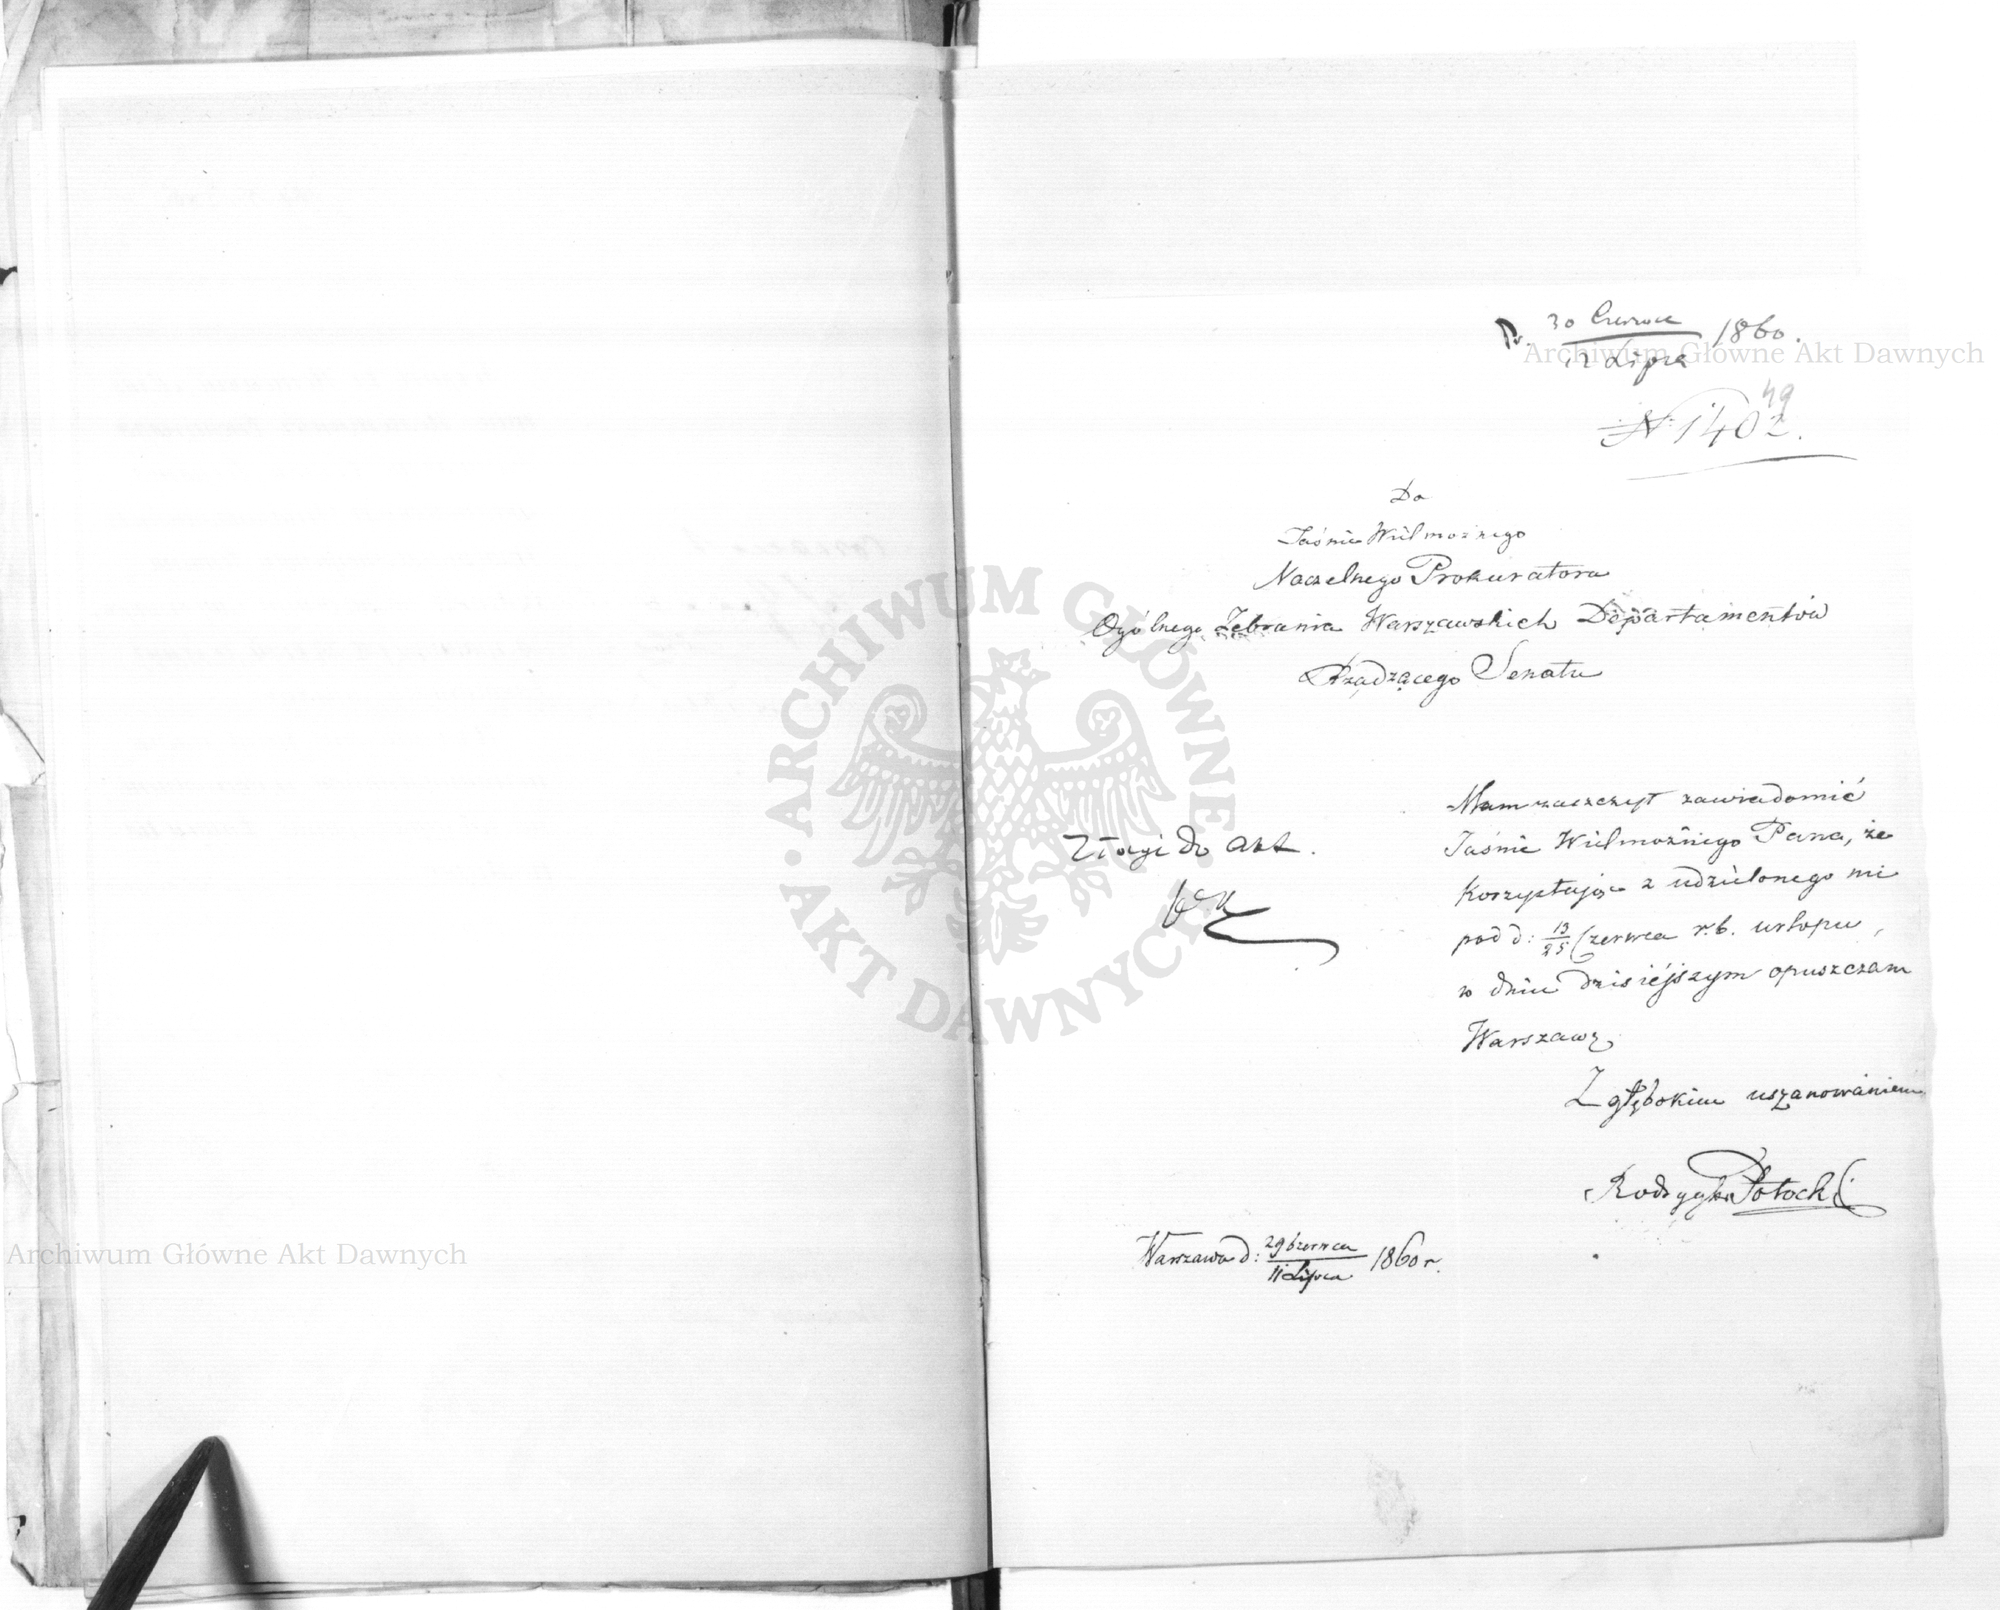 Pr. 30 Czerwca / 12 Lipca 1860.
49
N 1402.
Do
Jaśnie Wielmożnego
Naczelnego Prokuratora
Ogólnego Zebrania Warszawskich Departamentów
Rządzącego Senatu
Mam zaszczyt zawiadomić
Jaśnie Wielmożnego Pana, że
Korzystając z udzielonego mi
pod d: 13/25 Czerwca r.b. urlopu,
w dniu dzisiejszym opuszczam
Warszawę.
Z głębokiem uszanowaniem
Potocki
Złożyć do Akt.
Warszawa d: 29 Czerwca / 11 Lipca 1860 r.
Archiwum Główne Akt Dawnych
Archiwum Główne Akt Dawnych
ARCHIWUM GŁÓWNE AKT DAWNYCH